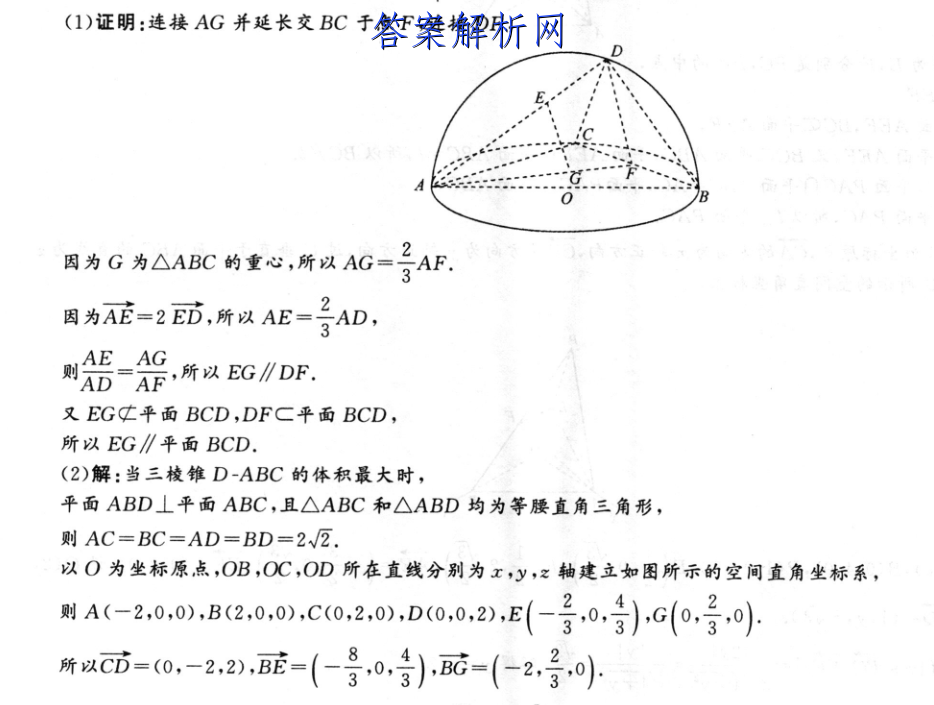 (1)证明:连接 AG 并延长交 BC 于点 F,连接 DF.
答案解析网
D
E
C
A
G
F
O
B
因为 G 为△ABC 的重心,所以 AG=\frac{2}{3}AF.
因为\overrightarrow{AE}=2\overrightarrow{ED},所以 AE=\frac{2}{3}AD,
则\frac{AE}{AD}=\frac{AG}{AF},所以 EG∥DF.
又 EG⊄平面 BCD,DF⊂平面 BCD,
所以 EG∥平面 BCD.
(2)解:当三棱锥 D-ABC 的体积最大时,
平面 ABD⊥平面 ABC,且△ABC 和△ABD 均为等腰直角三角形,
则 AC=BC=AD=BD=2√2.
以 O 为坐标原点,OB,OC,OD 所在直线分别为 x,y,z 轴建立如图所示的空间直角坐标系,
则 A(-2,0,0),B(2,0,0),C(0,2,0),D(0,0,2),E(-\frac{2}{3},0,\frac{4}{3}),G(0,\frac{2}{3},0).
所以\overrightarrow{CD}=(0,-2,2),\overrightarrow{BE}=(-\frac{8}{3},0,\frac{4}{3}),\overrightarrow{BG}=(-2,\frac{2}{3},0).